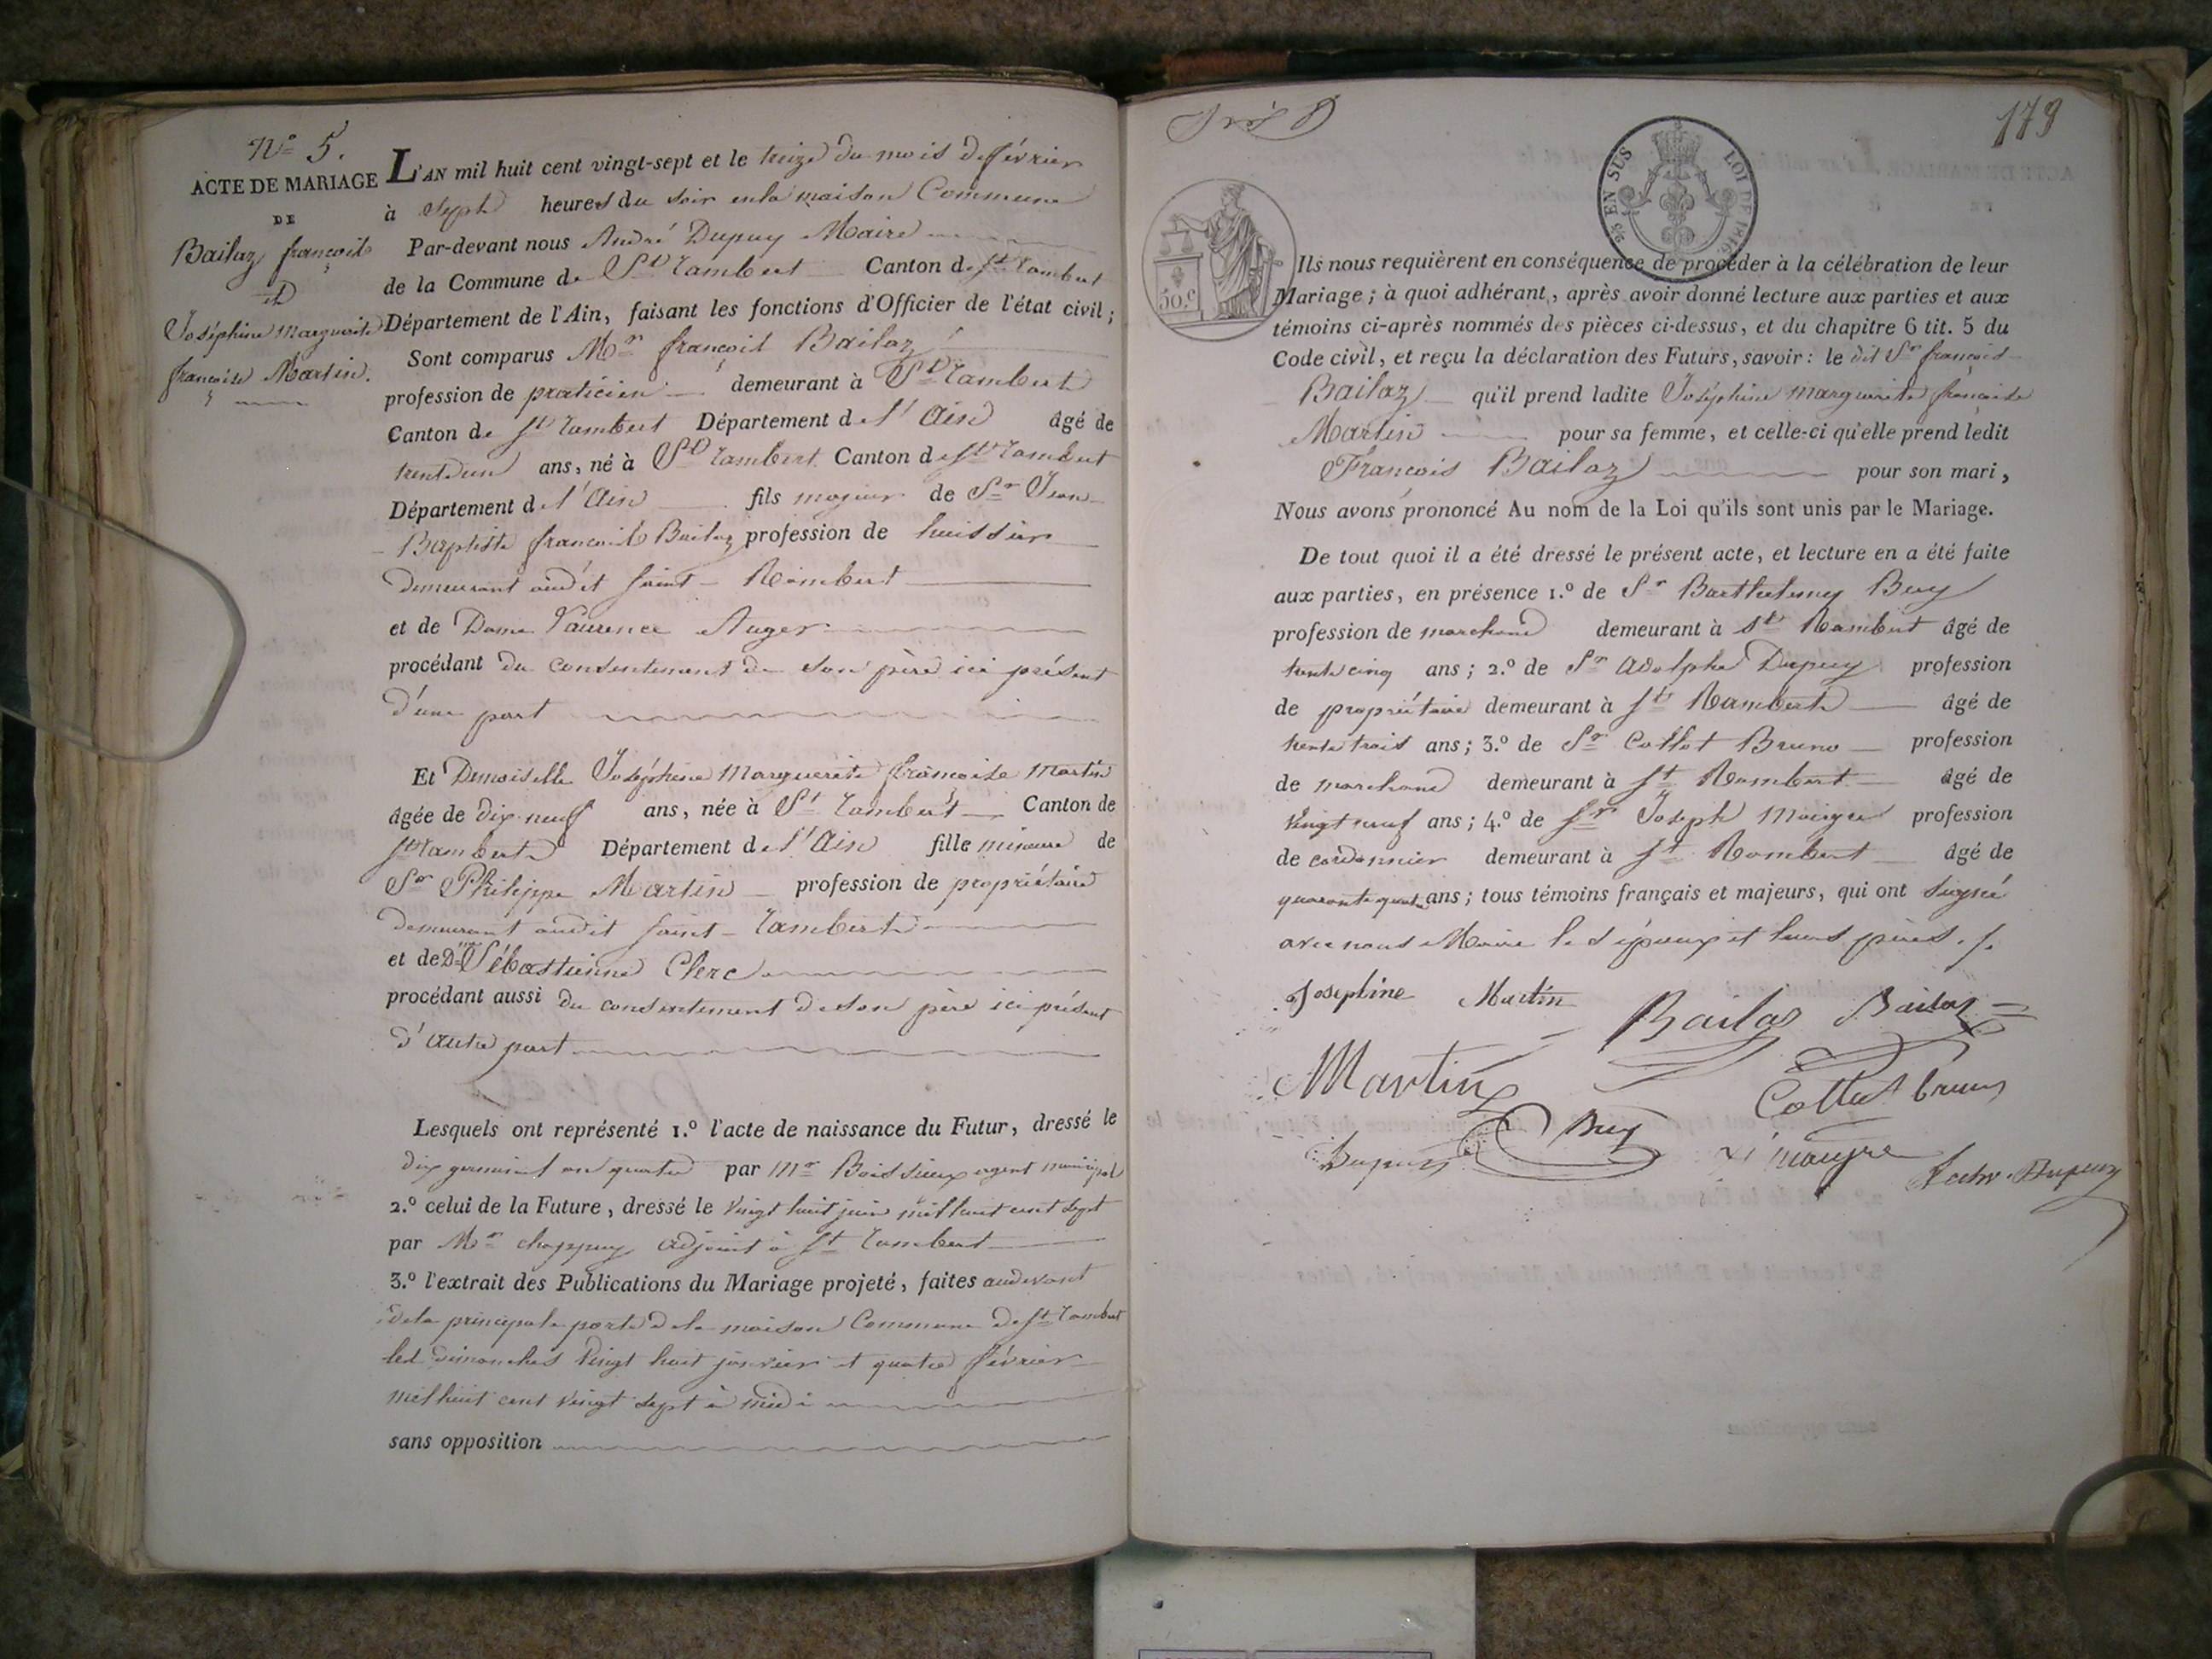 N.º 5.
ACTE DE MARIAGE
DE
Bailaz françois
et
Joséphine Marguerite
françoise Martin.
L'AN mil huit cent vingt-sept et le treize du mois de février
à sept heures du soir en la maison Commune
Par-devant nous André Dupuy Maire
de la Commune de St Rambert Canton de St Rambert
Département de l'Ain, faisant les fonctions d'Officier de l'état civil;
Sont comparus Mr françois Bailaz
profession de praticien demeurant à St Rambert
Canton de St Rambert Département de l'Ain âgé de
trente un ans, né à St Rambert Canton de St Rambert
Département de l'Ain fils majeur de Sr Jean
Baptiste françois Bailaz profession de huissier
demeurant audit Saint-Rambert
et de Dame Laurence Auger
procédant du consentement de son père ici présent
d'une part
Et Demoiselle Joséphine Marguerite françoise Martin
âgée de dix-neuf ans, née à St Rambert Canton de
St Rambert Département de l'Ain fille mineure de
Sr Philippe Martin profession de propriétaire
demeurant audit Saint-Rambert
et de Dme Sébastienne Clerc
procédant aussi du consentement de son père ici présent
d'autre part
Lesquels ont représenté 1.º l'acte de naissance du Futur, dressé le
dix germinal an quatre par Mr Boissieux agent municipal
2.º celui de la Future, dressé le vingt huit juin mil huit cent sept
par Mr Chappuy adjoint à St Rambert
3.º l'extrait des Publications du Mariage projeté, faites audevant
de la principale porte de la maison Commune de St Rambert
les dimanches vingt huit janvier et quatre février
mil huit cent vingt sept à midi
sans opposition
179
EN SUS
LOI DE 1816
50.c
Ils nous requièrent en conséquence de procéder à la célébration de leur
Mariage; à quoi adhérant, après avoir donné lecture aux parties et aux
témoins ci-après nommés des pièces ci-dessus, et du chapitre 6 tit. 5 du
Code civil, et reçu la déclaration des Futurs, savoir: le dit Sr françois
Bailaz qu'il prend ladite Joséphine Marguerite françoise
Martin pour sa femme, et celle-ci qu'elle prend ledit
François Bailaz pour son mari,
Nous avons prononcé Au nom de la Loi qu'ils sont unis par le Mariage.
De tout quoi il a été dressé le présent acte, et lecture en a été faite
aux parties, en présence 1.º de Sr Barthelemy Buy
profession de marchand demeurant à St Rambert âgé de
trente cinq ans; 2.º de Sr Adolphe Dupuy profession
de propriétaire demeurant à St Rambert âgé de
trente trois ans; 3.º de Sr Collet Bruno profession
de marchand demeurant à St Rambert âgé de
vingt neuf ans; 4.º de Sr Joseph Maigre profession
de cordonnier demeurant à St Rambert âgé de
quarante quatre ans; tous témoins français et majeurs, qui ont signé
avec nous Maire les époux et leurs pères.
Josephine Martin Bailaz Bailaz
Martin
Collet bruno
Dupuy Buy maigre Dupuy